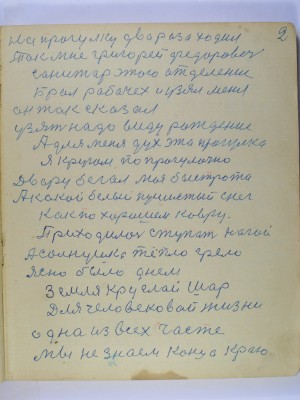 2
на прогулку два раза ходил
Так мне григорей федоровеч
санитар этого атделения
Брал рабочех и взял меня
он так сказал
узят надо виду рождение
А для меня дух эта прогулка
Я кругом по прогулочно
Двору бегал моя быстрота
А какой белый пушистый снег
Как по хорошем ковру.
Приходилос ступат нагой
А солнушко тёпло грело
Ясно было днем
Земля круглай шар
Для человековай жизни
одна из всех часте
Мы не знаем конца краю